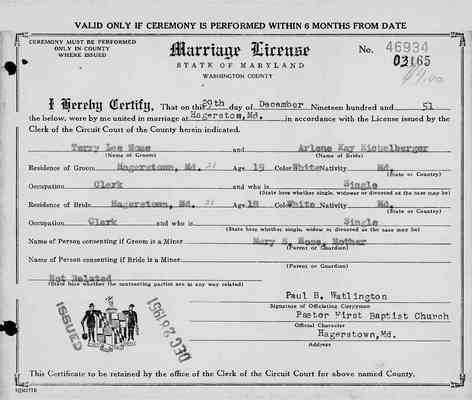 VALID ONLY IF CEREMONY IS PERFORMED WITHIN 6 MONTHS FROM DATE
CEREMONY MUST BE PERFORMED
ONLY IN COUNTY
WHERE ISSUED
Marriage License
STATE OF MARYLAND
WASHINGTON COUNTY
No. 46934
03165
I Hereby Certify, That on this 29th day of December Nineteen hundred and 51
the below, were by me united in marriage at Hagerstown, Md. in accordance with the License issued by the
Clerk of the Circuit Court of the County herein indicated.
Terry Lee and Arlene Kay Eichelberger
(Name of Groom) (Name of Bride)
Residence of Groom Hagerstown, Md. 21 Age 19 Color White Nativity Md.
(State or Country)
Occupation Clerk and who is Single
(State here whether single, widower or divorced as the case may be)
Residence of Bride Hagerstown, Md. 21 Age 18 Color White Nativity Md.
(State or Country)
Occupation Clerk and who is Single
(State here whether single, widow or divorced as the case may be)
Name of Person consenting if Groom is a Minor Mary E. Mother
(Parent or Guardian)
Name of Person consenting if Bride is a Minor
(Parent or Guardian)
Not Related
(State here whether the contracting parties are in any way related)
Paul B. Watlington
Signature of Officiating Clergyman
Pastor First Baptist Church
Official Character
Hagerstown, Md.
Address
ISSUED
DEC 28 1951
This Certificate to be retained by the office of the Clerk of the Circuit Court for above named County.